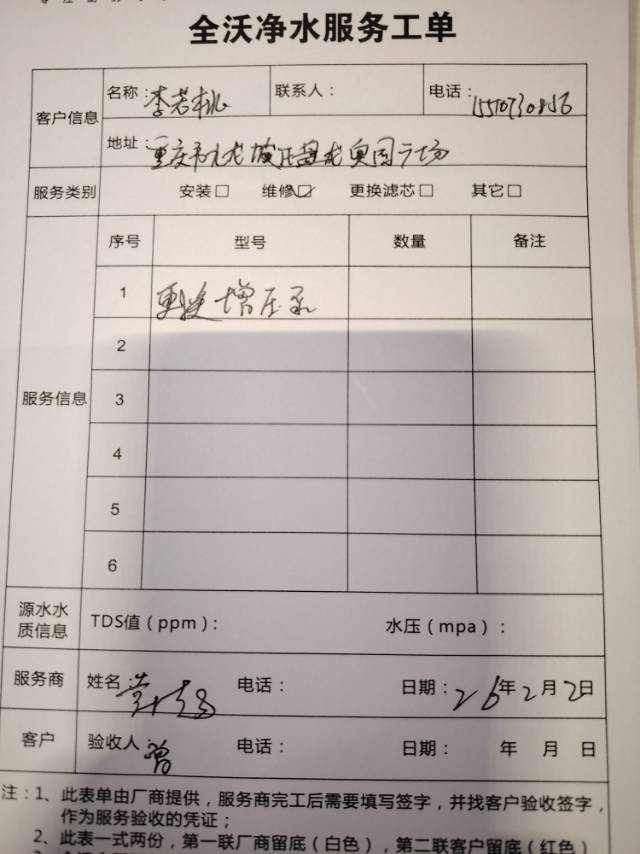 全沃净水服务工单
客户信息
名称：李若桃 联系人： 电话：
地址：重庆市九龙坡区盘龙奥园广场
服务类别 安装□ 维修☑ 更换滤芯□ 其它□
服务信息
序号 型号 数量 备注
1 更换增压泵
2
3
4
5
6
源水水质信息 TDS值（ppm）： 水压（mpa）：
服务商 姓名： 电话： 日期：26年2月2日
客户 验收人：曾 电话： 日期： 年 月 日
注：1、此表单由厂商提供，服务商完工后需要填写签字，并找客户验收签字，
作为服务验收的凭证；
2、此表一式两份，第一联厂商留底（白色），第二联客户留底（红色）